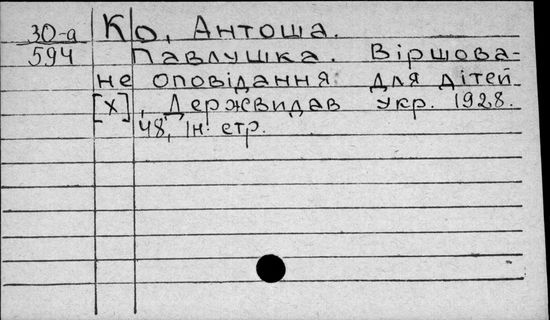 30-а Ко, Антоша.
594 Павлушка. Віршова-
не оповідання для дітей
[X], Держвидав укр. 1928.
48, Ін. стр.